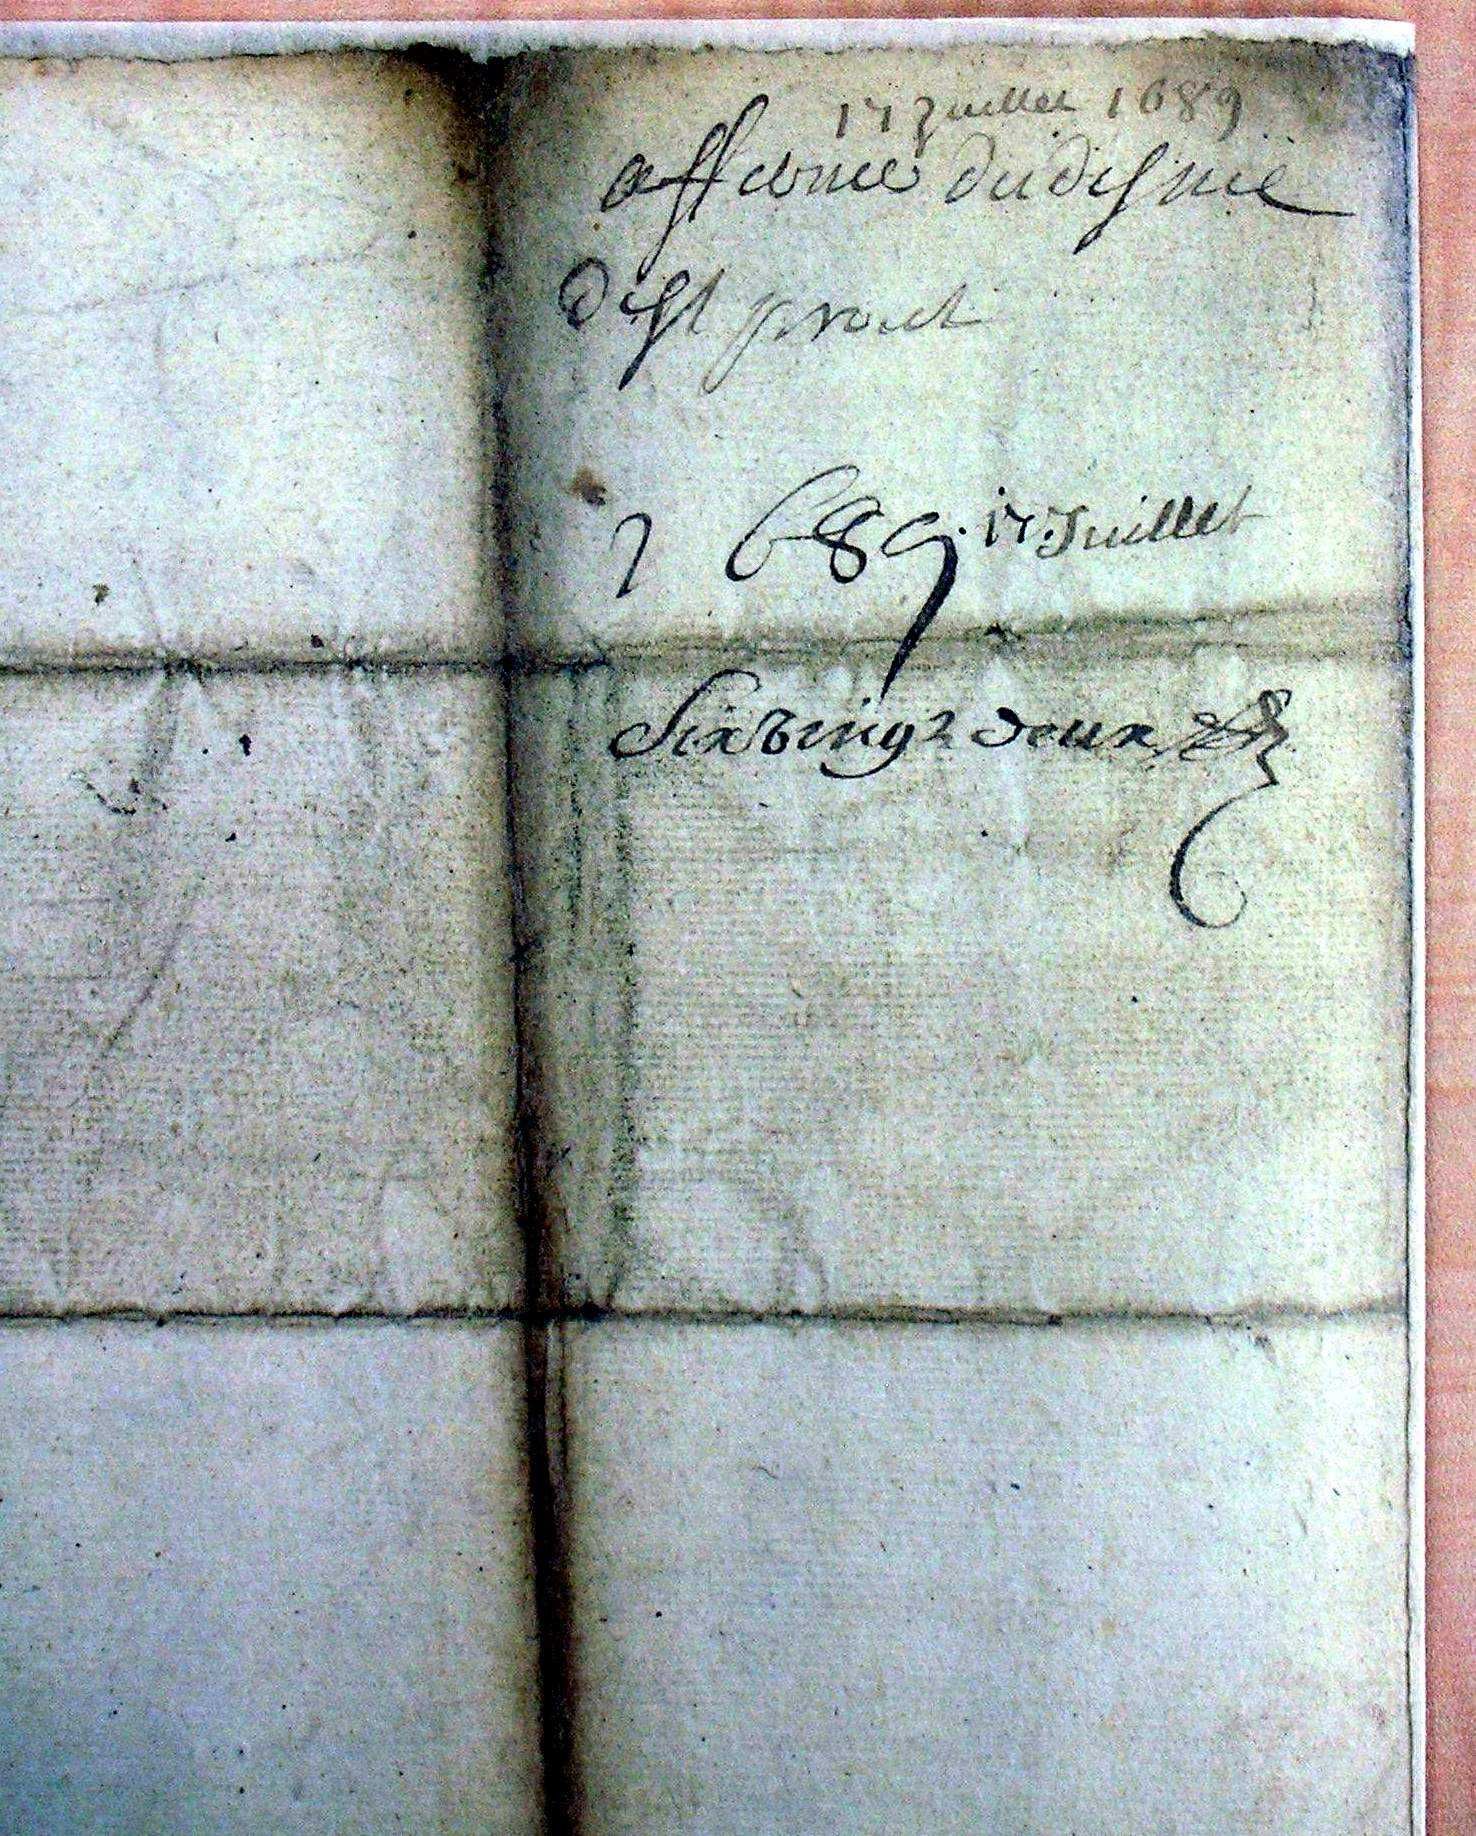 17 juillet 1689
afferme du disme
de St privact
1689. 17. Juillet
Six vingt deux